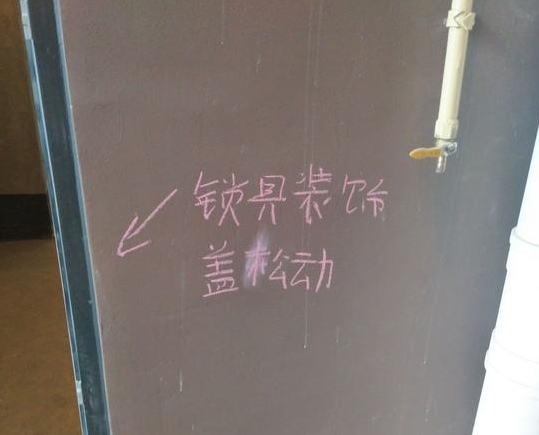 锁具装饰
盖松动